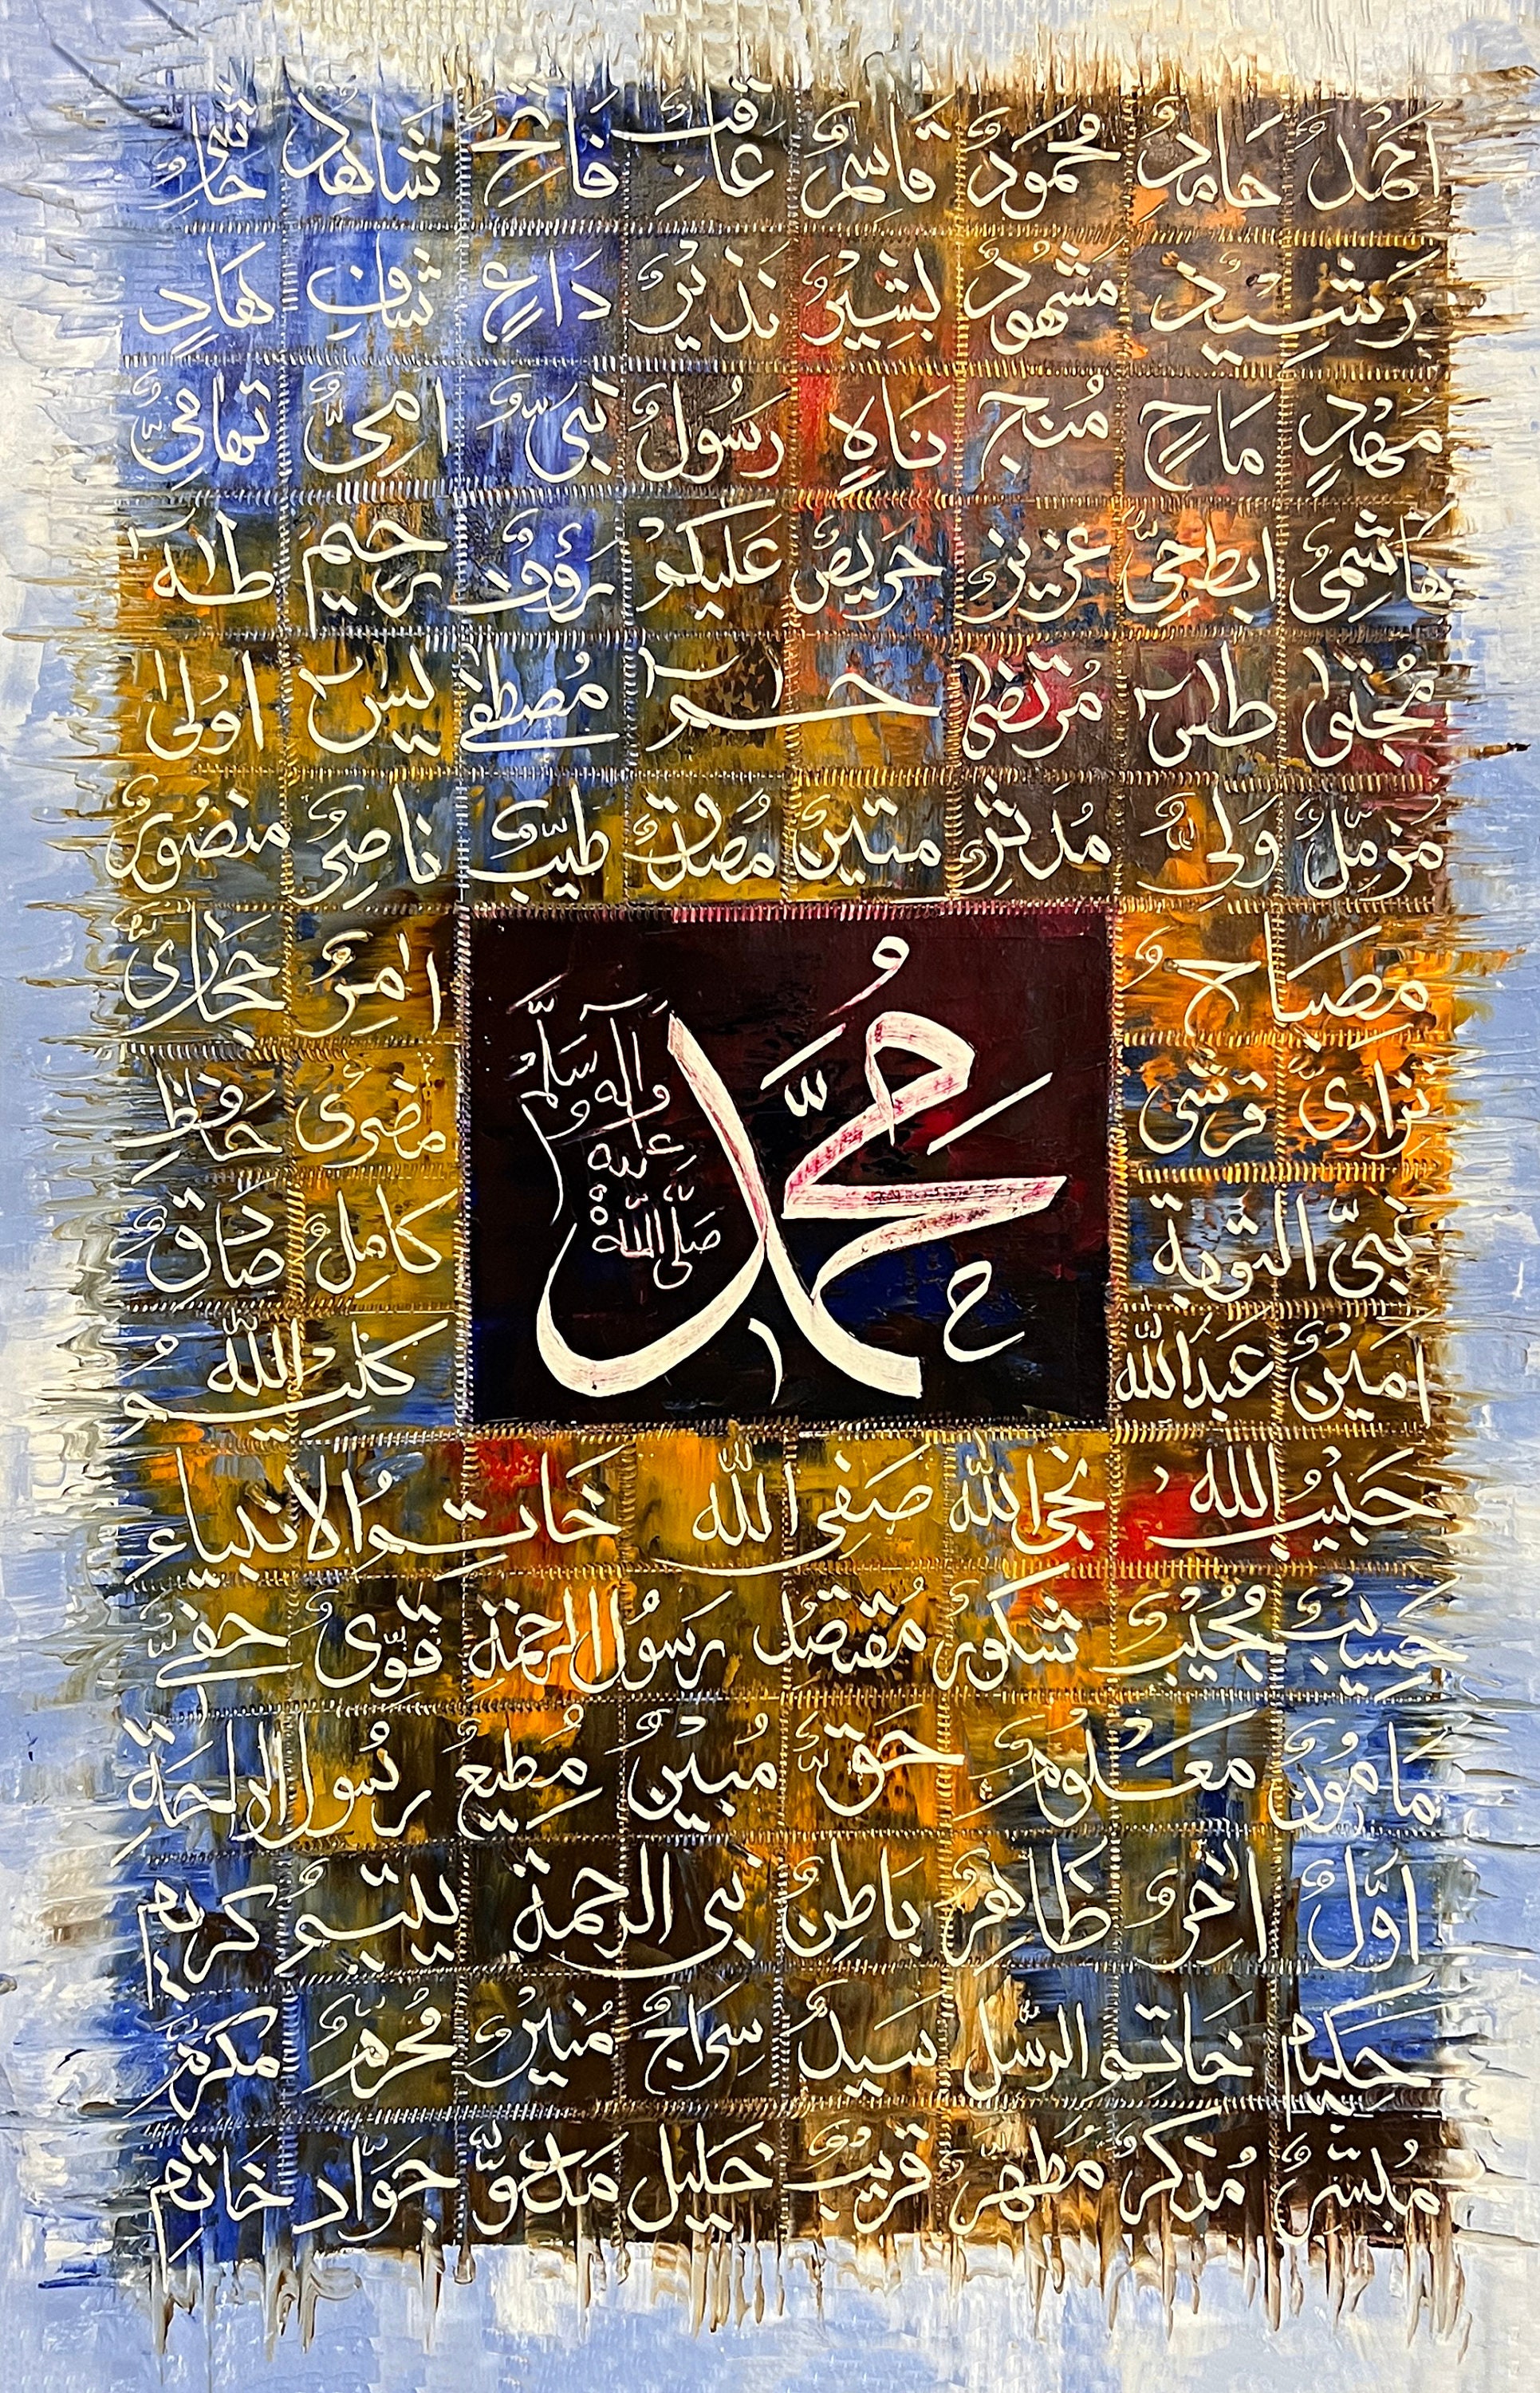 اَحْمَدٌ حَامِدٌ مَحْمُودٌ قَاسِمٌ عَاقِبٌ فَاتِحٌ شَاهِدٌ حَاشِرٌ
رَشِيْدٌ مَشْهُودٌ بَشِيْرٌ نَذِيْرٌ دَاعٍ شَافٍ هَادٍ
مَهْدٍ مَاحٍ مُنْجٍ نَاهٍ رَسُولٌ نَبِىٌّ اُمِّىٌّ تِهَامِىٌّ
هَاشِمِىٌّ اَبْطَحِىٌّ عَزِيزٌ حَرِيصٌ عَلَيْكُمْ رَؤُفٌ رَحِيمٌ طٰهٰ
مُجْتَبٰى طٰسٓ مُرْتَضٰى حٰمٓ مُصْطَفٰى يٰسٓ اَوْلٰى
مُزَّمِّلٌ وَلِىٌّ مُدَّثِّرٌ مَتِيْنٌ مُصَدِّقٌ طَيِّبٌ نَاصِرٌ مَنْصُورٌ
مِصْبَاحٌ اٰمِرٌ حِجَازِىٌّ
نِزَارِىٌّ قُرَشِىٌّ مُضَرِىٌّ حَافِظٌ
نَبِىُّ التَّوْبَةِ كَامِلٌ صَادِقٌ
اَمِيْنٌ عَبْدُاللّٰه كَلِيْمُ اللّٰه
مُحَمَّدٌ
صَلَّى اللّٰهُ عَلَيْهِ وَاٰلِهٖ وَسَلَّمَ
حَبِيْبُ اللّٰه نَجِىُّ اللّٰه صَفِىُّ اللّٰه خَاتِمُ الْاَنْبِيَاءِ
حَسِيْبٌ مُجِيْبٌ شَكُورٌ مُقْتَصِدٌ رَسُولُ الرَّحْمَةِ قَوِىٌّ حَفِىٌّ
مَامُونٌ مَعْلُومٌ حَقٌّ مُبِيْنٌ مُطِيعٌ رَسُولُ الرَّاحَةِ
اَوَّلٌ اٰخِرٌ ظَاهِرٌ بَاطِنٌ نَبِىُّ الرَّحْمَةِ يَتِيمٌ كَرِيمٌ
حَكِيْمٌ خَاتِمُ الرُّسُلِ سَيِّدٌ سِرَاجٌ مُنِيْرٌ مُحَرِّمٌ مُكَرَّمٌ
مُبَشِّرٌ مُذَكِّرٌ مُطَهَّرٌ قَرِيبٌ خَلِيلٌ مَدْعُوٌّ جَوَّادٌ خَاتِمٌ